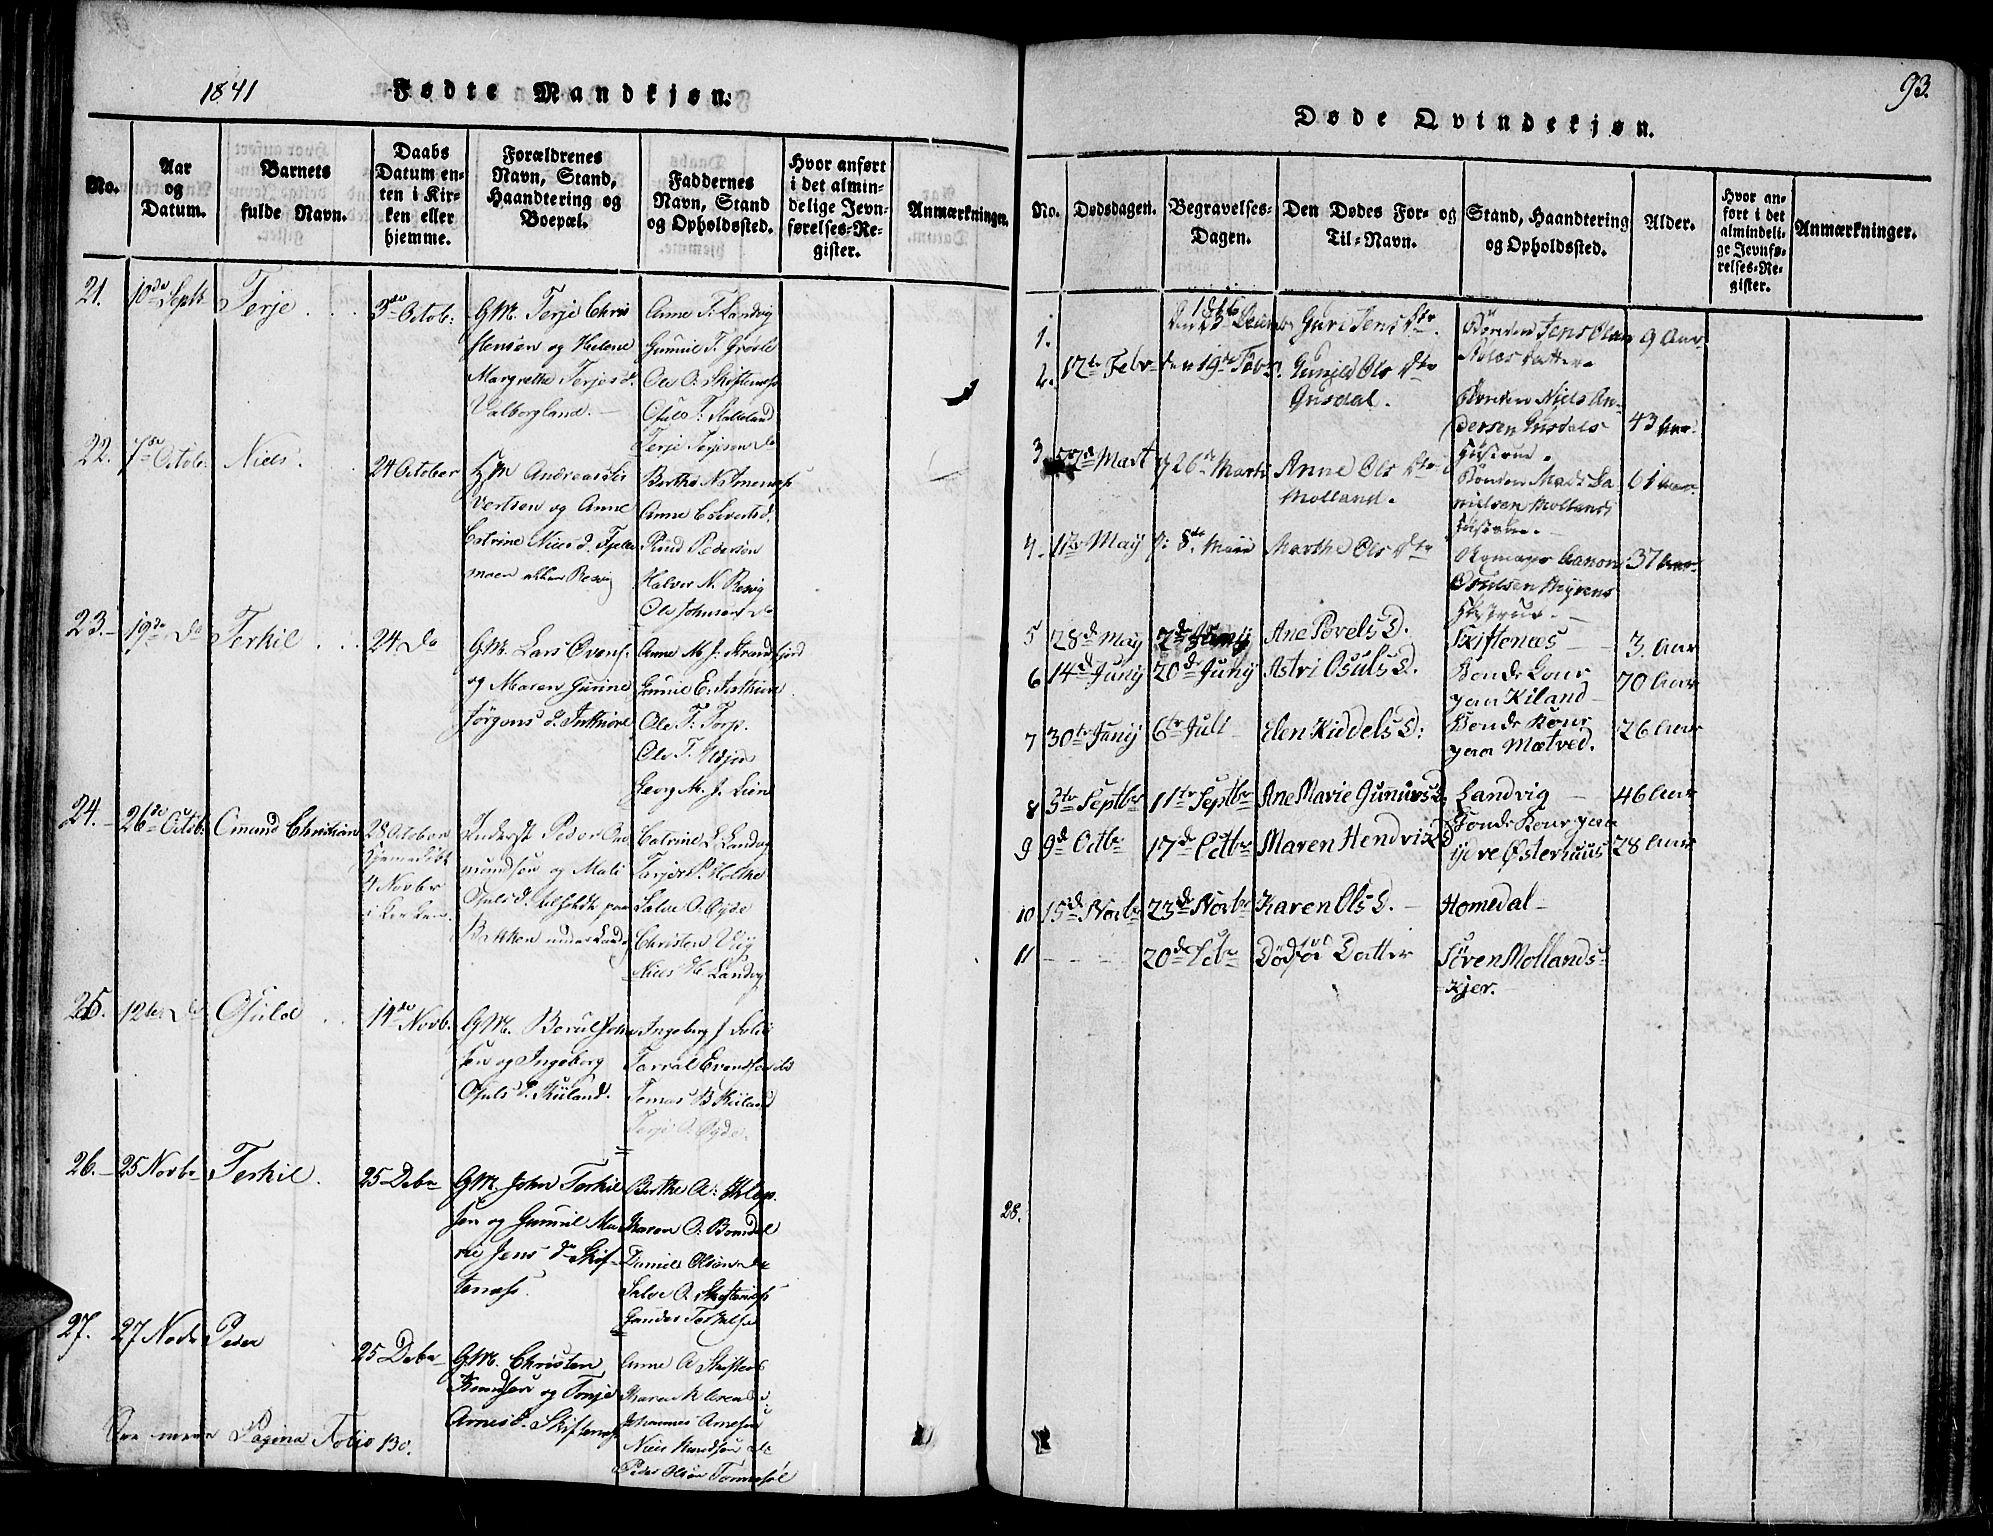 1841
Fødte Mandkjøn.
No.
Aar
og
Datum.
Barnets
fulde Navn.
Daabs
Datum en-
ten i Kir-
ken eller
hiemme.
Forældrenes
Navn, Stand,
Haandtering og
Boepæl.
Faddernes
Navn, Stand
og Opholdssted.
Hvor anført
i det almin-
delige Jevn-
førelses-Re-
gister.
Anmærkninger.
21.
10de Septr.
Terje
3die Octob:
GM. Terje Chris
stensen og Helene
Margrethe Terjes d.
Valborgland.
Anne T. Landvig
Gunnil T. Groslè
Ole O.
Osuld T.
Terje Terjesen do
22.
7de Octob:
Niels.
24 October
Andreas Si
vertsen og Anne
Catrine Niels d. Fjelle
moen
Berthe N.
Anne E. Sivertsd.
Knud Pedersen
Halvor N. Resvig
Ole Johnsen do
23.
19de do
Terkil
24 do
GM. Lars Evens.
og Maren Gurine
Jørgens d.
Anne M. J. Strandfjord
Gunnil E.
Ole T. Torp.
Ole T.
Georg M. J.
24.
26de Octob.
Omund Christian
28 October
hjemmedøbt
4 Novbr
i Kirken.
Inderst Peder Om
mundsøn og Mali
Osuls d.
Bakken under Landv
Catrine L. Landvig
Tarjer P. Holthe
Salve O. Øyde
Christen
Niels H. Landvig
25.
12te do
Osuld
14de Novb.
GM. Berulf John
sen og Ingeborg
Osuls d. Kiiland.
Ingeborg J.
Torval
Tomas B. Kiiland
Terje O. Øyde.
26.
25 Novbr
Terkil.
25 Debr
GM. John Terkil
sen og Gunnil Ma
rie Jens dr Skif-
tenæs.
Berthe A.
Maren O. Bomdal
Daniel Olsen do
Salve O. Skiftenæs
Gunder Terkelsen
27.
27 Novbr
Peder
25 Debr
GM. Christen
Knudsen og Tonje
Arnes d. Skiftenæs
Anne A. Skiftenæs
Karen K.
Johannes Arnesen
Niels Knudsen do
Peder Olsen Tønnesøl
mere Pagina Folio 130.
93.
Døde Qvindekjøn.
No.
Dødsdagen.
Begravelses-
Dagen.
Den Dødes For- og
Til-Navn.
Stand, Haandtering
og Opholdssted.
Alder.
Hvor an-
fört i det
almindeli-
ge Jevnfø-
relses-Re-
gister.
Anmærkninger.
1816
1.
Guri Jens Dtr.
Bonden Jens Olsen
datter
9 Aar
2.
12te Febr
den 19de Febr.
Gunild Ols Dtr
Gusdal.
Bonden Niels An-
dersen Gusdals
Hustrue.
43 Aar
3
Mart
26de Marti
Anne Ols Dtr
Molland.
Bonden Mads Da
nielsen Mollands
Hustrue.
61 Aar
4.
May
8de Maii
Marthe Ols Dtr
Aanon
Osulsen Myrens
Hustrue.
37 Aar
5
28de May
2de Juny
Ane Povels D.
Skiftenæs
3. Aar
6
14de Juny
20de Juny
Astri Osuls D.
Bonde Kone
paa Kiland
70 Aar
7
30te Juny
6te Juli
Elen Kiddels D:
Bonde Kone
paa Mætved.
26 Aar
8
3te Septbr
11te Septbr
Ane Marie Gunuvs D.
Landvig
46 Aar
9
9de Octbr
17de Octbr
Maren Hendriz D
Bonde Kone paa
ydre Østerhuus
28 Aar
10
15de Novbr
23de Novbr
Karen Ols D.
Homedal
11
20de
Dødfød Datter
Søren Mollands-
kjer.
28.